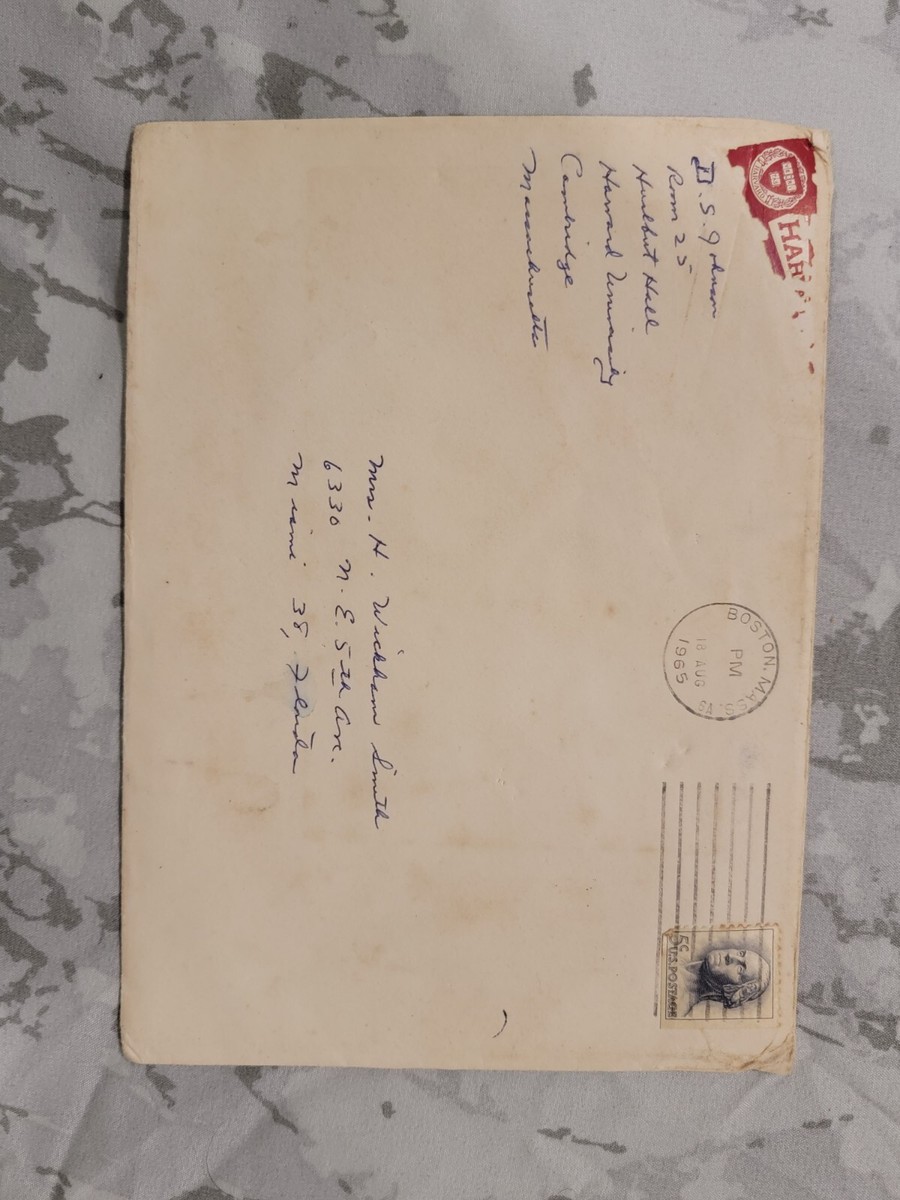 HAR
D. S. Johnson
Room 25
Hurlbut Hall
Harvard University
Cambridge
Massachusetts
BOSTON, MASS.
PM
18 AUG
1965
5¢
U.S. POSTAGE
Mrs. H. Wickham Smith
6330 N.E. 5th Ave.
Miami 38, Florida